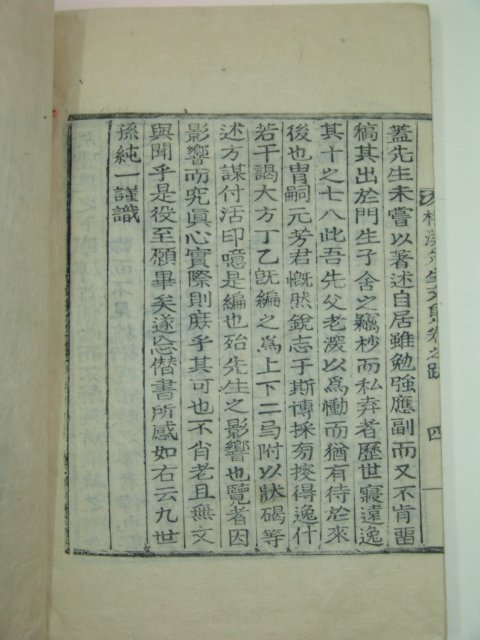 蓋先生未嘗以著述自居雖勉強應副而又不肯畱
稿其出於門生子舍之竊抄而私弆者歷世寢遠逸
其十之七八此吾先父老深以爲慟而猶有待於來
後也胄嗣元芳君慨然銳志于斯博採旁搜得逸什
若干謁大方丁乙旣編之爲上下二局附以狀碣等
述方謀付活印噫是編也殆先生之影響也覽者因
影響而究眞心實際則庶乎其可也不肖老且無文
與聞乎是役至願畢矣遂忘僭書所感如右云九世
孫純一謹識
先生文集卷之跋
四